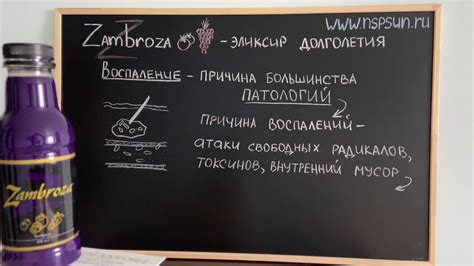 www.nspsun.ru
Zambroza - ЭЛИКСИР ДОЛГОЛЕТИЯ
ВОСПАЛЕНИЕ - ПРИЧИНА БОЛЬШИНСТВА
ПАТОЛОГИЙ
ПРИЧИНА ВОСПАЛЕНИЙ -
АТАКИ СВОБОДНЫХ РАДИКАЛОВ,
ТОКСИНОВ, ВНУТРЕННИЙ МУСОР
Zambroza